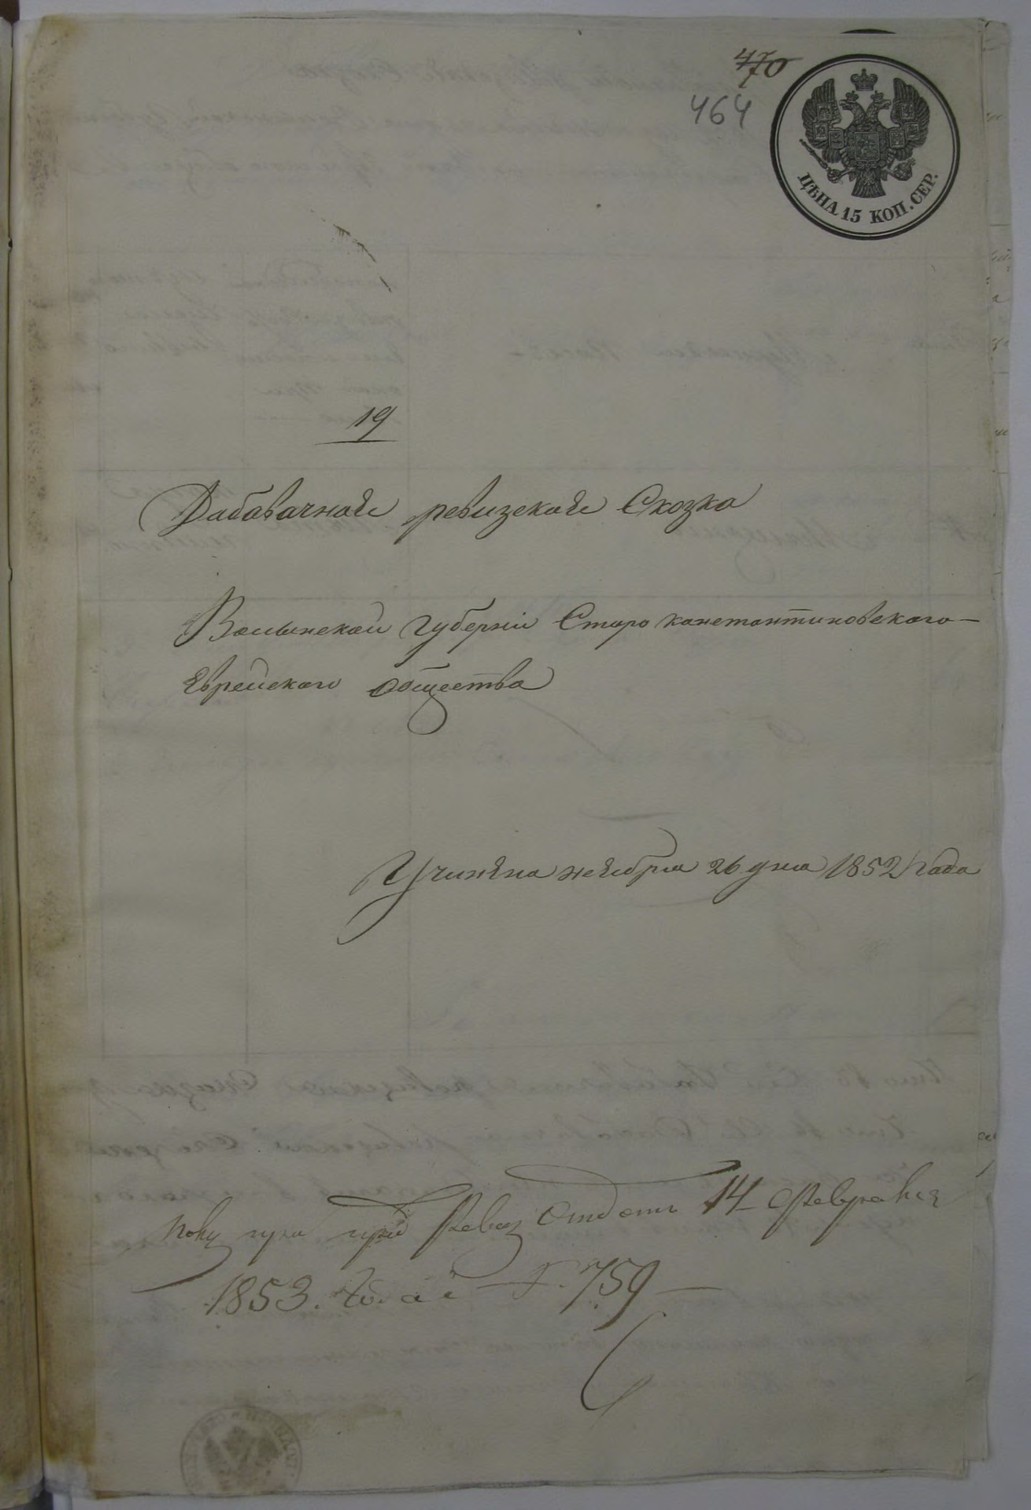 470
464
ЦѢНА 15 КОП. СЕР.
19
Дабавачная ревизская Сказка
Волынской Губерніи Старо константиновского
Еврейского общества
Учинена ноября 26 дня 1852 Года
при Ревиз 14 Февраля
1853. 759